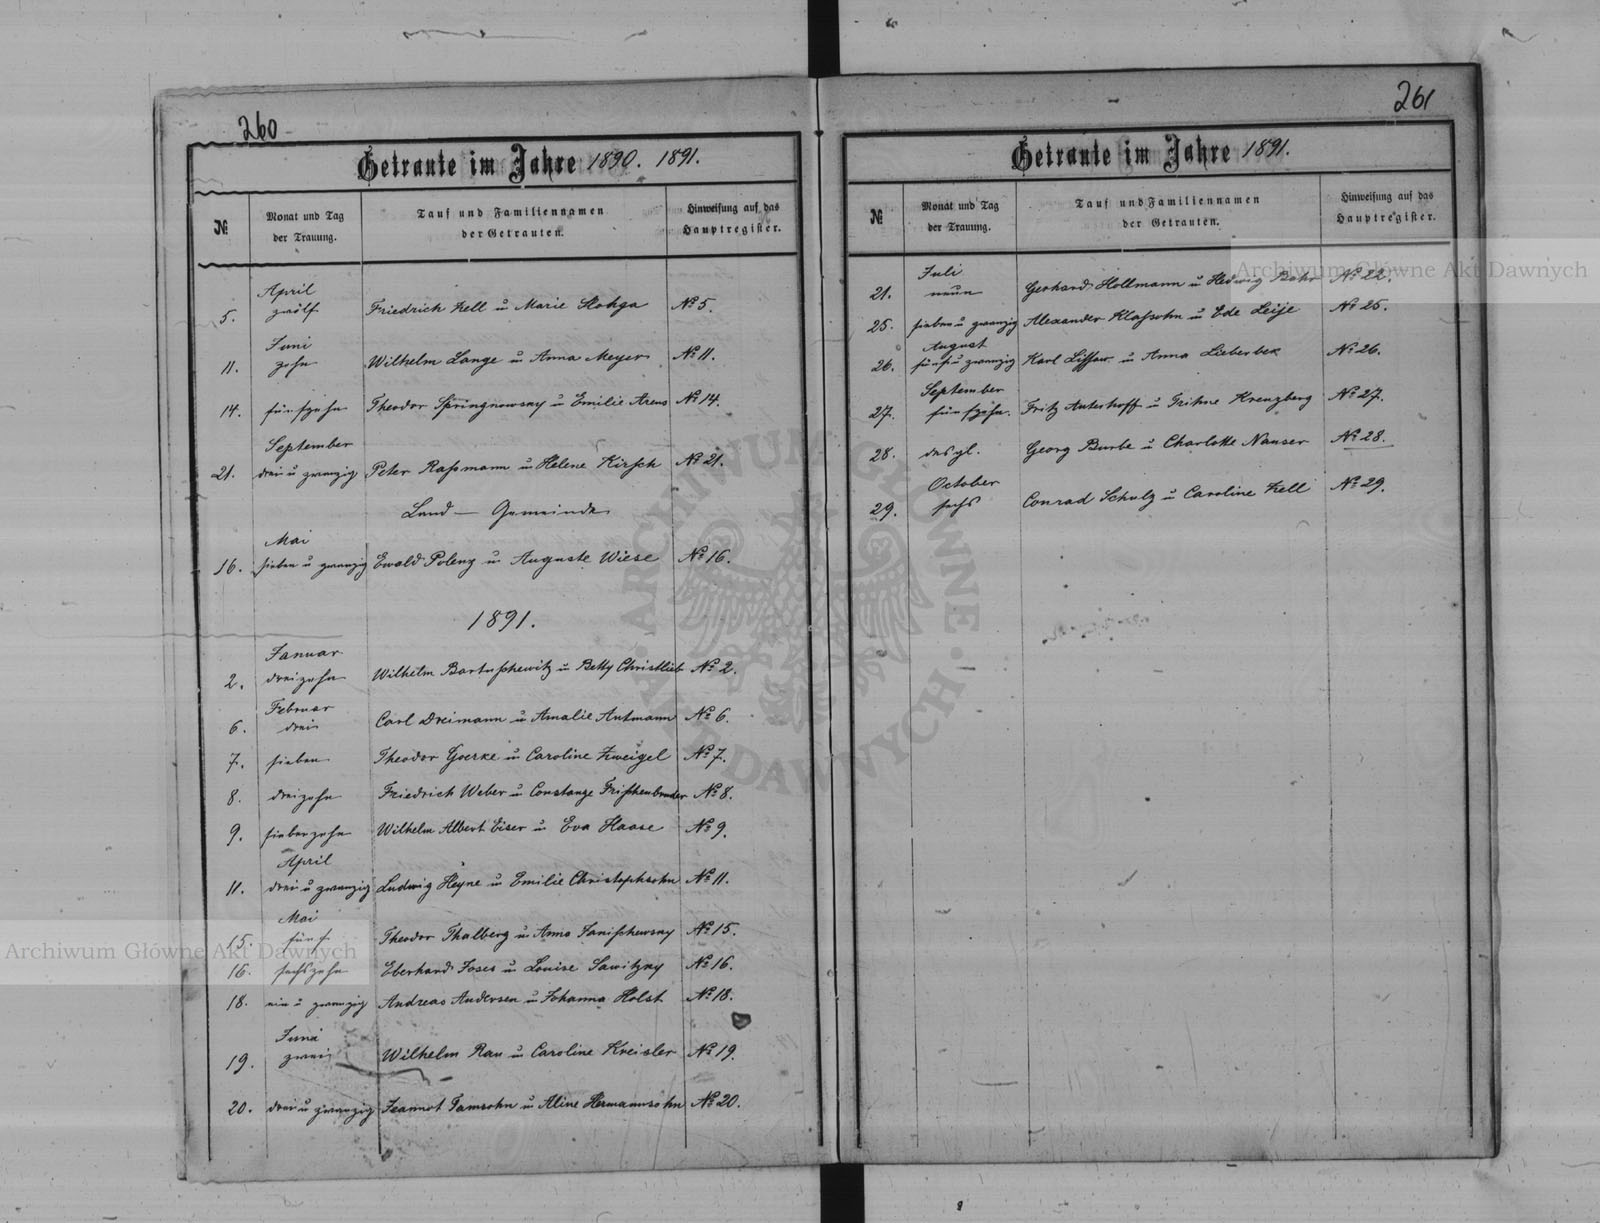 260
Getraute im Jahre 1890. 1891.
№ Monat und Tag der Trauung. Tauf und Familiennamen der Getrauten. Hinweisung auf das Hauptregister.
April
5. zwölf Friedrich Zell u Marie Stohga № 5.
Juni
11. zehn Wilhelm Lange u Anna Meyer № 11.
14. fünfzehn Theodor Springnowsky u Emilie Arens № 14.
September
21. drei u zwanzig Peter Raßmann u Helene Kirsch № 21.
Land — Gemeinde
Mai
16. sieben u zwanzig Ewald Polenz u Auguste Wiese № 16.
1891.
Januar
2. dreizehn Wilhelm Bartuschewitz u Betty Christlieb № 2.
Februar
6. drei Carl Dreimann u Amalie Autmann № 6.
7. sieben Theodor Goerke u Caroline Zweigel № 7.
8. dreizehn Friedrich Weber u Constanze Frischenbruder № 8.
9. siebenzehn Wilhelm Albert Eiser u Eva Haase № 9.
April
11. drei u zwanzig Ludwig Heyne u Emilie Christophsohn № 11.
Mai
15. fünf Theodor Thalberg u Anna Janischewsky № 15.
16. sechszehn Eberhard Joses u Louise Sawitzky № 16.
18. ein u zwanzig Andreas Andersen u Johanna Holst № 18.
Juni
19. zwei Wilhelm Rau u Caroline Kreisler № 19.
20. drei u zwanzig Jeannot Jamsohn u Aline Hermannsohn № 20.
261
Getraute im Jahre 1891.
№ Monat und Tag der Trauung. Tauf und Familiennamen der Getrauten. Hinweisung auf das Hauptregister.
Juli
21. neun Gerhard Hollmann u Hedwig Bohr № 22.
25. sieben u zwanzig Alexander Klassohn u Ede Leije № 25.
August
26. fünf u zwanzig Karl Lissau u Anna Lieberbek № 26.
September
27. fünfzehn. Fritz Auteshoff u Trihne Kreuzberg № 27.
28. desgl. Georg Burbe u Charlotte Nauser № 28.
October
29. sechs Conrad Schulz u Caroline Zell № 29.
Archiwum Główne Akt Dawnych
Archiwum Główne Akt Dawnych
ARCHIWUM GŁÓWNE AKT DAWNYCH